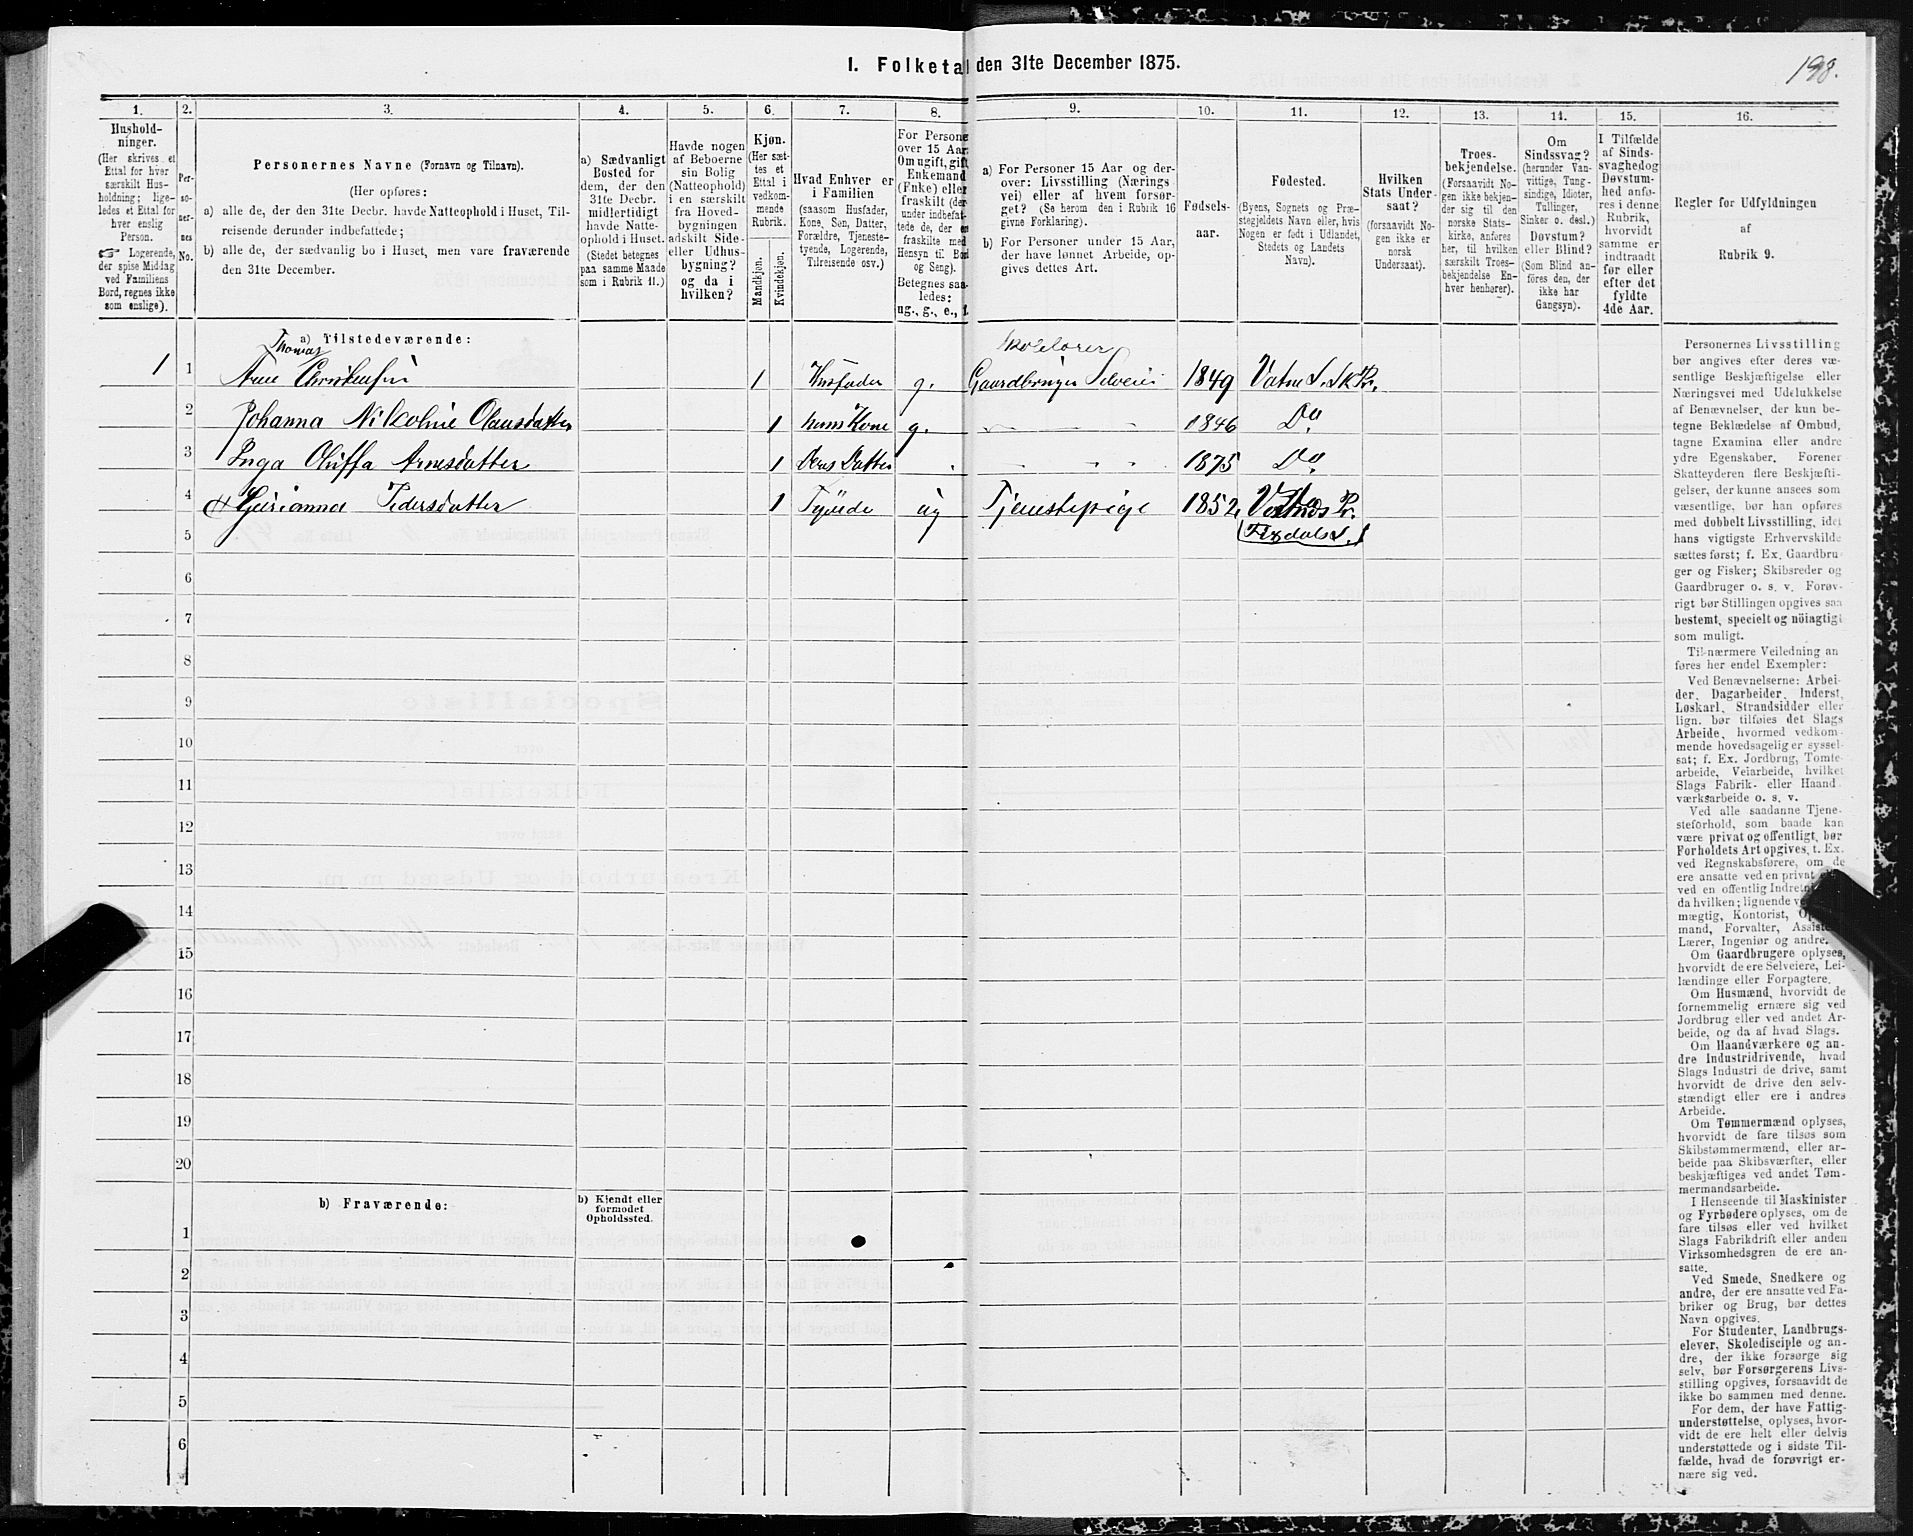 198.
I. Folketal den 31te December 1875.
1. 2. 3. 4. 5. 6. 7. 8. 9. 10. 11. 12. 13. 14. 15. 16.
Hushold-
ninger.
(Her skrives et
Ettal for hver
særskilt Hus-
holdning; lige-
ledes et Ettal for
hver enslig
Person.
☞ Logerende,
der spise Middag
ved Familiens
Bord, regnes ikke
som enslige).
Per-
so-
ner-
nes
No.
Personernes Navne (Fornavn og Tilnavn).
(Her opføres:
a) alle de, der den 31te Decbr. havde Natteophold i Huset, Til-
reisende derunder indbefattede;
b) alle de, der sædvanlig bo i Huset, men vare fraværende
den 31te December.
a) Sædvanligt
Bosted for
dem, der den
31te Decbr.
midlertidigt
havde Natte-
ophold i Huset.
(Stedet betegnes
paa samme Maade
som i Rubrik 11.)
Havde nogen
af Beboerne
sin Bolig
(Natteophold)
i en særskilt
fra Hoved-
bygningen
adskilt Side-
eller Udhus-
bygning?
og da i
hvilken?
Kjøn.
(Her sæt-
tes et
Ettal i
vedkom-
mende
Rubrik.
Mandkjøn.
Kvindekjøn.
Hvad Enhver er
i Familien
(saasom Husfader,
Kone, Søn, Datter,
Forældre, Tjeneste-
tyende, Logerende,
Tilreisende osv.)
For Persone
over 15 Aar:
Om ugift, gift,
Enkemand
(Enke) eller
fraskilt (der-
under indbefat-
tede de, der er
fraskilte med
Hensyn til Bord
og Seng).
Betegnes saa-
ledes:
ug., g., e., f.
a) For Personer 15 Aar og der-
over: Livsstilling (Nærings
vei) eller af hvem forsør-
get? (Se herom den i Rubrik 16
givne Forklaring).
b) For Personer under 15 Aar,
der have lønnet Arbeide, op-
gives dettes Art.
Fødsels-
aar.
Fødested.
(Byens, Sognets og Præ-
stegjeldets Navn eller, hvis
Nogen er født i Udlandet,
Stedets og Landets
Navn).
Hvilken
Stats Under-
saat?
(forsaavidt No-
gen ikke er
norsk
Undersaat).
Troes-
bekjendelse.
(Forsaavidt No-
gen ikke bekjen-
der sig til den
norske Stats-
kirke, anføres
her, til hvilken
særskilt Troes-
bekjendelse En-
hver henhører).
Om
Sindssvag?
(herunder Van-
vittige, Tung-
sindige, Idioter,
Tullinger,
Sinker o. desl.)
Døvstum?
eller Blind?
(Som Blind an-
føres den, der
ikke har
Gangsyn).
I Tilfælde
af Sinds-
svaghed og
Døvstum-
hed anfø-
res i denne
Rubrik,
hvorvidt
samme er
indtraadt
før eller
efter det
fyldte
4de Aar.
Regler for Udfyldningen
af
Rubrik 9.
a) Tilstedeværende:
Thomas Skolelærer
1 1 Arne Christensen 1 Husfader g. Gaardbruger Selveier 1849 Vatne S. Sk Pr.
2 Johanna Nikoline Olausdatter 1 hans Kone g. 1846 Do
3 Inga Oluffa Arnesdatter 1 Deres Datter 1875 Do
4 Pedersdatter 1 Tyende ug Tjenestepige 1852
5
6
7
8
9
10
11
12
13
14
15
16
17
18
19
20
b) Fraværende:
b) Kjendt eller
formodet
Opholdssted.
1
2
3
4
5
6
Personernes Livsstilling
bør angives efter deres væ-
sentlige Beskjæftigelse eller
Næringsvei med Udelukkelse
af Benævnelser, der kun be-
tegne Beklædelse af Ombud,
tagne Examina eller andre
ydre Egenskaber. Forener
Skatteyderen flere Beskjæfti-
gelser, der kunne ansees som
væsentlige, bør han opføres
med dobbelt Livsstilling, idet
hans vigtigste Erhvervskilde
sættes først; f. Ex. Gaardbru-
ger og Fisker; Skibsreder og
Gaardbruger o. s. v. Forøv-
rigt bør Stillingen opgives saa
bestemt, specielt og nöiagtigt
som muligt.
Til nærmere Veiledning an
føres her endel Exempler:
Ved Benævnelserne: Arbei-
der, Dagarbeider, Inderst,
Løskarl, Strandsidder eller
lign. bør tilføies det Slags
Arbeide, hvormed vedkom-
mende hovedsagelig er syssel-
sat; f. Ex. Jordbrug, Tomte-
arbeide, Veiarbeide, hvilket
Slags Fabrik- eller Haand
værksarbeide o. s. v.
Ved alle saadanne Tjene-
steforhold, som baade kan
være privat og offentligt, bør
Forholdets Art opgives, t. Ex.
ved Regnskabsførere, om de
ere ansatte ved en privat
ved en offentlig
da hvilken; lignende
mægtig, Kontorist,
mand, Forvalter,
Lærer, Ingeniør og andre.
Om Gaardbrugere oplyses,
hvorvidt de ere Selveiere, Lei-
lændinge eller Forpagtere.
Om Husmænd, hvorvidt de
fornemmelig ernære sig ved
Jordbrug eller ved andet Ar-
beide, og da af hvad Slags.
Om Haandværkere og an-
dre Industridrivende, hvad
Slags Industri de drive, samt
hvorvidt de drive den selv-
stændigt eller ere i andres
Arbeide.
Om Tømmermænd oplyses,
hvorvidt de fare tilsøs som
Skibstømmermænd, eller ar-
beide paa Skibsværfter, eller
beskjæftiges ved andet Tøm-
mermandsarbeide.
I Henseende til Maskinister
og Fyrbødere oplyses, om de
fare tilsøs eller ved hvilket
Slags Fabrikdrift eller anden
Virksomhedsgren de ere an-
satte.
Ved Smede, Snedkere og
andre, der ere ansatte ved Fa-
briker og Brug, bør dettes
Navn opgives.
For Studenter, Landbrugs-
elever, Skoledisciple og an-
dre, der ikke forsørge sig
selv, bør Forsørgerens Livs-
stilling opgives, forsaavidt de
ikke bo sammen med denne.
For dem, der have Fattig-
understøttelse, oplyses, hvor-
vidt de ere helt eller delvis
understøttede og i sidste Til-
fælde, hvad de forøvrigt er-
nære sig ved.